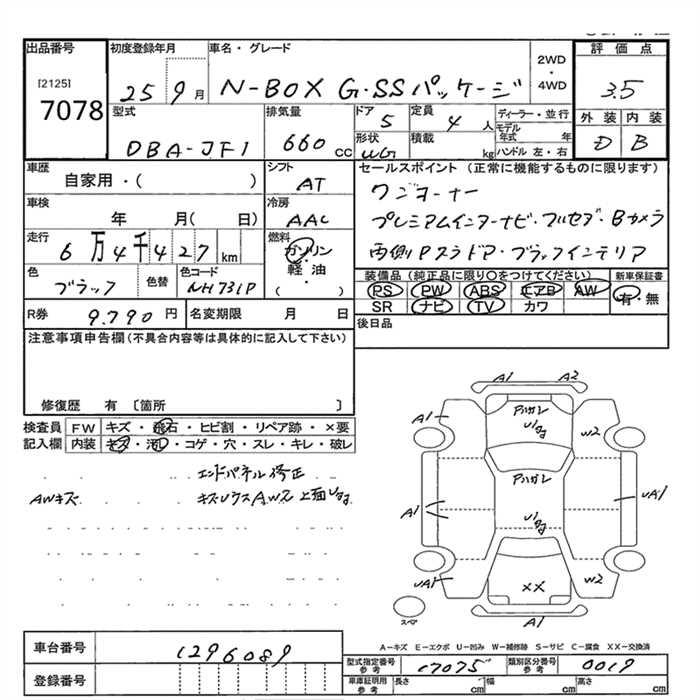 出品番号 初度登録年月 車名・グレード 2WD・4WD 評価点
[2125]
7078 25 9月 N-BOX G・SSパッケージ 3.5
型式 排気量 ドア 定員 ディーラー・並行 外装 内装
DBA-JF1 660cc 5 4人 モデル年式 年 D B
形状 積載 ハンドル 左・右
WG kg
車歴 シフト セールスポイント (正常に機能するものに限ります)
自家用・( ) AT ワンオーナー
車検 冷房
年 月( 日) AAC プレミアムインターナビ・フルセグ・Bカメラ
走行 燃料
6万4千427km ガソリン・軽油・( ) 両側Pスラドア・ブラックインテリア
色 色替 色コード 装備品(純正品に限り○をつけてください) 新車保証書
ブラック NH731P PS PW ABS エアB AW 有・無
SR ナビ TV カワ
R券 9.790円 名変期限 月 日 後日品
注意事項申告欄(不具合内容等は具体的に記入して下さい)
修復歴 有 〔箇所 〕
検査員 FW キズ・飛石・ヒビ割・リペア跡・×要
記入欄 内装 キズ・汚れ・コゲ・穴・スレ・キレ・破レ
エンドパネル修正
AWキズ
A1 A2
A1 アハガレ W2
アハガレ
A1 UA1
UA1 XX W2
スペア A1
A-キズ E-エクボ U-凹み W-補修跡 S-サビ C-腐食 XX-交換済
車台番号 1296089
型式指定番号 参考 17075 類別区分番号 参考 0019
登録番号
車庫証明用 参考 長さ cm 幅 cm 高さ cm